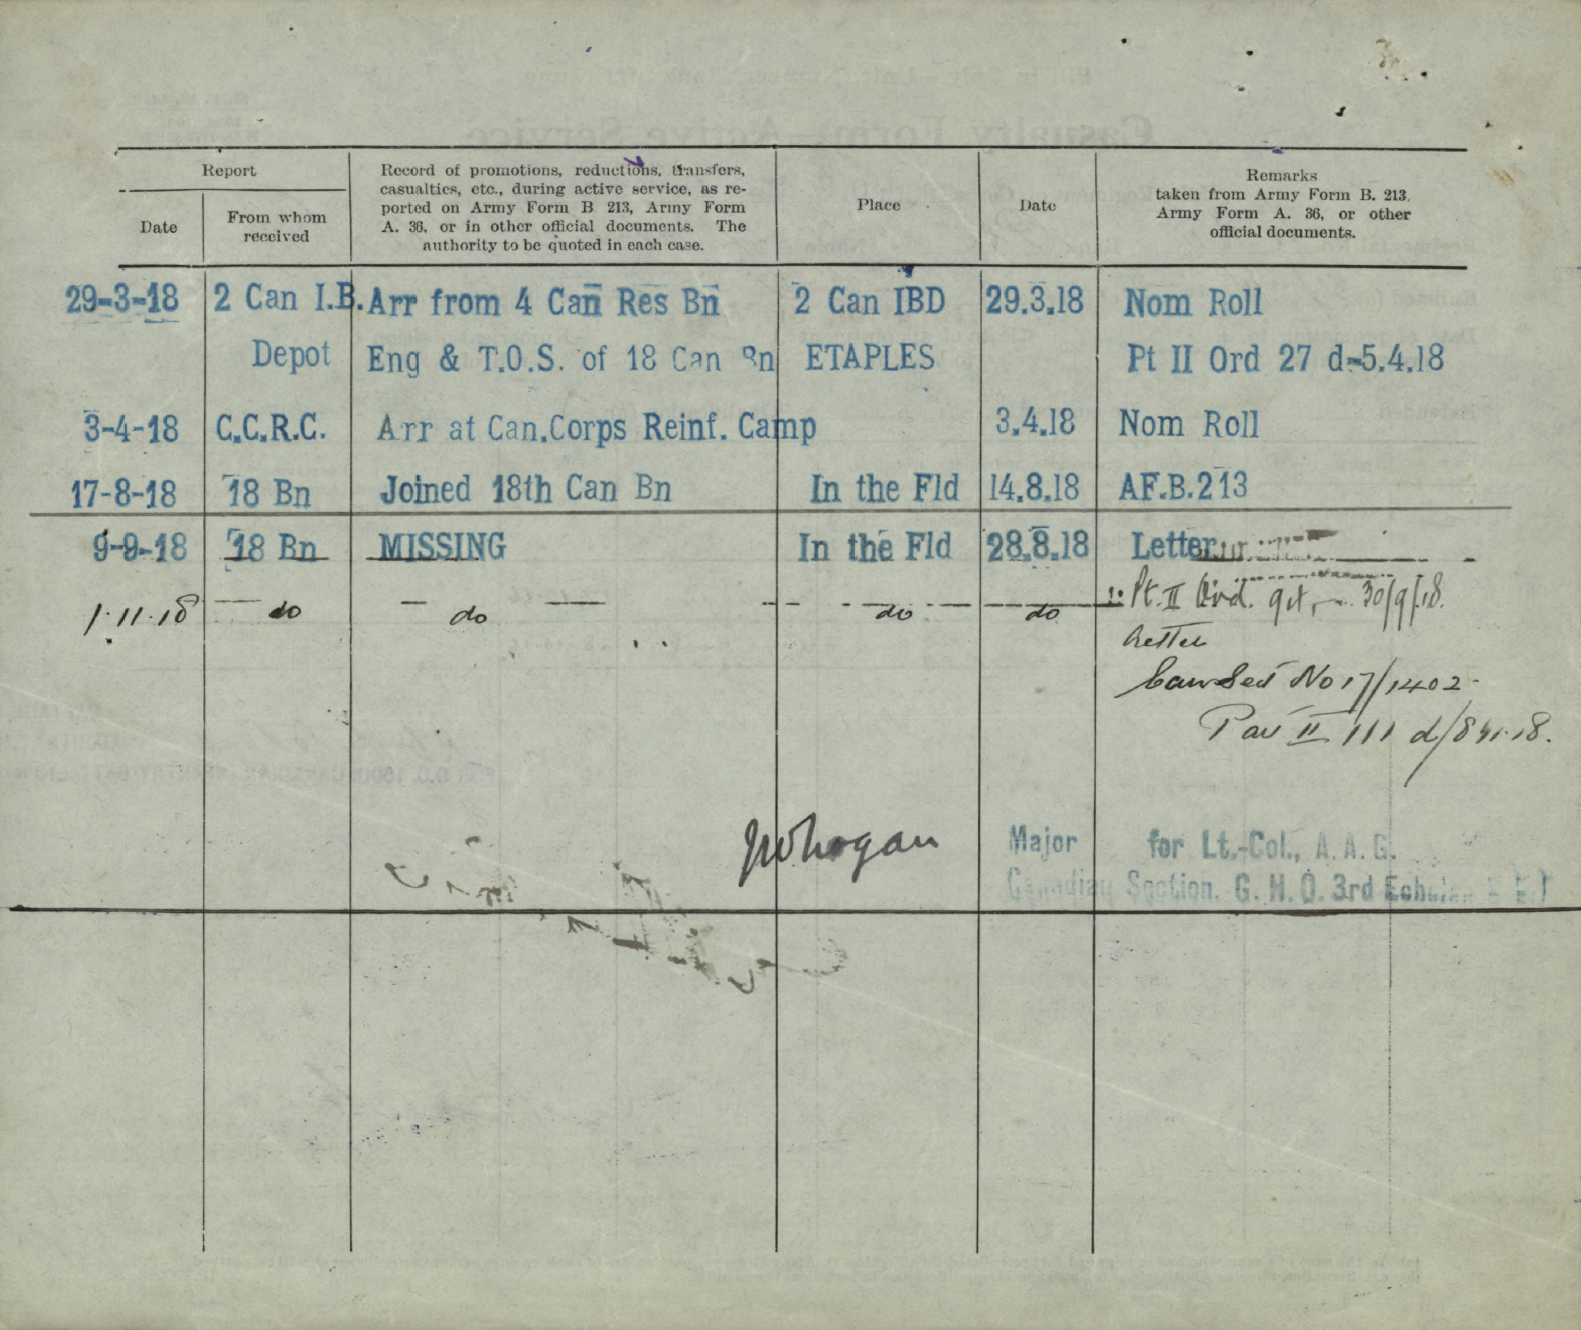 Report
Date
From whom
received
Record of promotions, reductions, transfers,
casualties, etc., during active service, as re-
ported on Army Form B 213, Army Form
A. 36, or in other official documents. The
authority to be quoted in each case.
Place
Date
Remarks
taken from Army Form B. 213,
Army Form A. 36, or other
official documents.
29-3-18 2 Can I.B. Arr from 4 Can Res Bn 2 Can IBD 29.3.18 Nom Roll
Depot Eng & T.O.S. of 18 Can Bn ETAPLES Pt II Ord 27 d-5.4.18
3-4-18 C.C.R.C. Arr at Can.Corps Reinf. Camp 3.4.18 Nom Roll
17-8-18 18 Bn Joined 18th Can Bn In the Fld 14.8.18 AF.B.213
9-9-18 18 Bn MISSING In the Fld 28.8.18 Letter
Pt. II Ord. 30/9/18.
1.11.18 do do do do
Letter
No 17/1402
II 111
Major for Lt.-Col., A. A. G.
Canadian Section. G. H. Q. 3rd Echelon